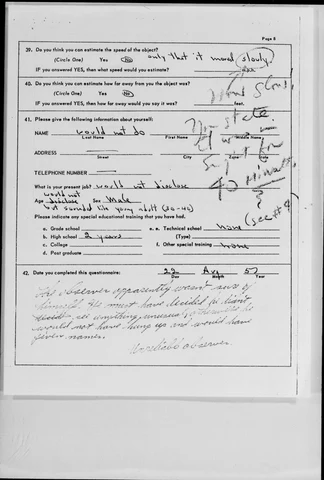 Page 8
39. Do you think you can estimate the speed of the object?
(Circle One) Yes No only that it moved slowly.
IF you answered YES, then what speed would you estimate?
40. Do you think you can estimate how far away from you the object was?
(Circle One) Yes No
IF you answered YES, then how far away would you say it was? feet.
41. Please give the following information about yourself:
NAME would not do
Last Name First Name Middle Name
ADDRESS
Street City Zone State
TELEPHONE NUMBER
What is your present job? would not disclose
would not
Age disclose Sex Male
but sounded like young adult (30-40)
Please indicate any special educational training that you have had.
a. Grade school e. Technical school none
b. High school 2 years (Type)
c. College f. Other special training none
d. Post graduate
You state
sight for
40 minutes
?
(see #9)
42. Date you completed this questionnaire: 22 Aug 57
Day Month Year
The observer apparently wasn't sure of
himself. He must have decided he didn't
see anything unusual, otherwise he
would not have hung up and would have
given names.
Unreliable observer.